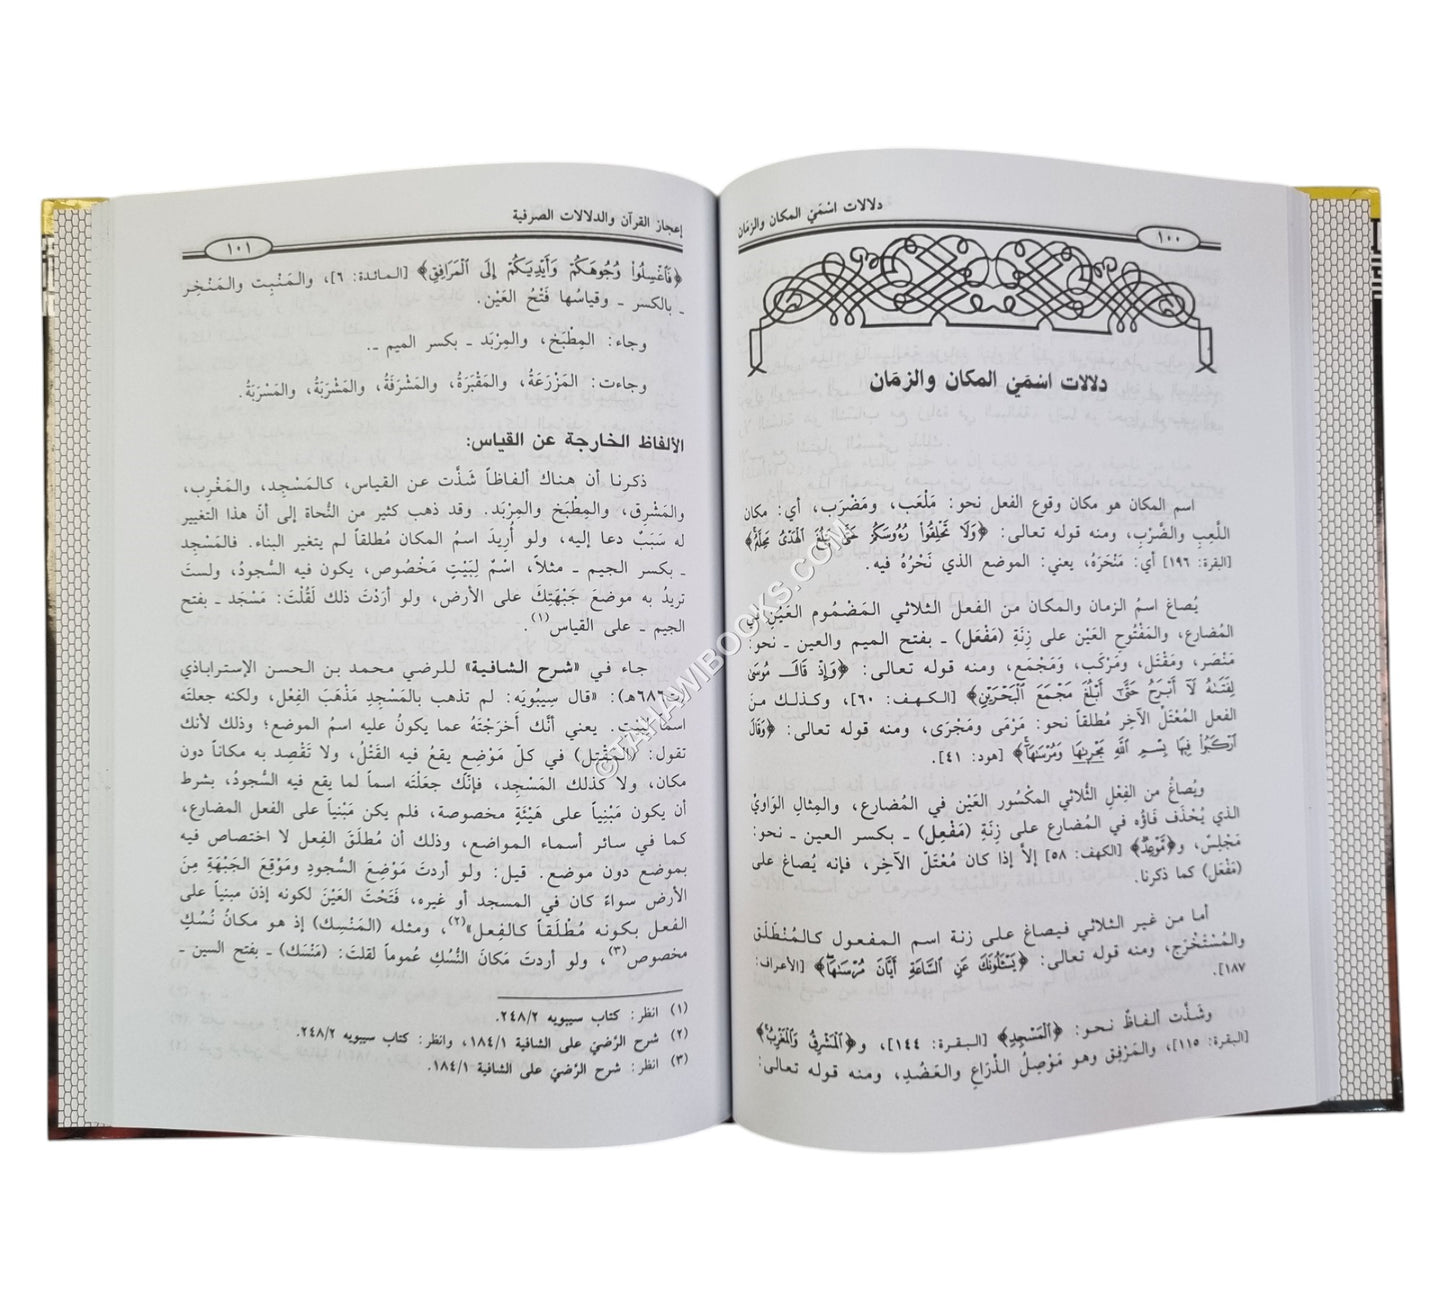 دلالات اسْمَيْ المكان والزمَان
١٠٠
دلالات اسْمَيْ المكان والزمَان
اسم المكان هو مكان وقوع الفعل نحو: مَلْعَب، ومَضْرَب، أي: مكان
اللَّعِبِ والضَّرْبِ، ومنه قوله تعالى: ﴿وَلَا تَحْلِقُوا۟ رُءُوسَكُمْ حَتَّىٰ يَبْلُغَ ٱلْهَدْىُ مَحِلَّهُۥ﴾
[البقرة: ١٩٦] أي: مَنْحَرَهُ، يعني: الموضع الذي نَحْرُهُ فيه.
يُصاغ اسمُ الزمان والمكان من الفعل الثلاثي المَضْمُوم العَيْنِ في
المُضارع، والمَفْتُوحِ العَيْن على زِنَةِ (مَفْعَل) ـ بفتح الميم والعين ـ نحو:
مَنْصَر، ومَقْتَل، ومَرْكَب، ومَجْمَع، ومنه قوله تعالى: ﴿وَإِذْ قَالَ مُوسَىٰ
لِفَتَىٰهُ لَآ أَبْرَحُ حَتَّىٰٓ أَبْلُغَ مَجْمَعَ ٱلْبَحْرَيْنِ﴾ [الكهف: ٦٠]، وكذلك منَ
الفعل المُعْتَلّ الآخِر مُطلقاً نحو: مَرْمَى ومَجْرَى، ومنه قوله تعالى: ﴿وَقَالَ
ٱرْكَبُوا۟ فِيهَا بِسْمِ ٱللَّهِ مَجْر۪ىٰهَا وَمُرْسَىٰهَآ﴾ [هود: ٤١].
ويُصاغُ من الفِعْلِ الثُّلاثي المكْسُور العَيْن في المُضارع، والمِثالِ الوَاويِّ
الذي يُحْذَف فَاؤُه في المُضارع على زِنَةِ (مَفْعِل) ـ بكسر العين ـ نحو:
مَجْلِسٌ، و﴿مَوْعِدٌ﴾ [الكهف: ٥٨] إلاَّ إذا كان مُعْتَلّ الآخِر، فإنه يُصاغ على
(مَفْعَل) كما ذكرنا.
أما من غير الثلاثي فيصاغ على زنة اسم المفعول كالمُنْطَلَق
والمُسْتَخْرَج، ومنه قوله تعالى: ﴿يَسْـَٔلُونَكَ عَنِ ٱلسَّاعَةِ أَيَّانَ مُرْسَىٰهَا﴾ [الأعراف:
١٨٧].
وشَذَّت ألفاظٌ نحو: ﴿ٱلْمَسْجِدِ﴾ [البقرة: ١٤٤]، و﴿ٱلْمَشْرِقُ وَٱلْمَغْرِبُ﴾
[البقرة: ١١٥]، والمَرْفِق وهو مَوْصِلُ الذِّرَاعِ والعَضُدِ، ومنه قوله تعالى:
إعجاز القرآن والدلالات الصرفية
١٠١
﴿فَٱغْسِلُوا۟ وُجُوهَكُمْ وَأَيْدِيَكُمْ إِلَى ٱلْمَرَافِقِ﴾ [المائدة: ٦]، والمَنْبِت والمَنْخِر
ـ بالكسر ـ وقياسُها فَتْحُ العَيْن.
وجاء: المِطْبَخ، والمِرْبَد ـ بكسر الميم ـ.
وجاءت: المَزْرَعَةُ، والمَقْبَرَةُ، والمَشْرَقَةُ، والمَشْرَبَةُ، والمَسْرَبَةُ.
الألفاظ الخارجة عن القياس:
ذكرنا أن هناك ألفاظاً شَذَّت عن القياس، كالمَسْجِد، والمَغْرِب،
والمَشْرِق، والمِطْبَخ والمِرْبَد. وقد ذهب كثير من النُّحاة إلى أنّ هذا التغيير
له سَبَبٌ دعا إليه، ولو أُرِيدَ اسمُ المكان مُطلقاً لم يتغير البناء. فالمَسْجِد
ـ بكسر الجيم ـ مثلاً، اسْمٌ لِبَيْتٍ مَخْصُوص، يكون فيه السُّجودُ، ولستَ
تريدُ به موضعَ جَبْهَتِكَ على الأرض، ولو أرَدْتَ ذلك لَقُلْتَ: مَسْجَد ـ بفتح
الجيم ـ على القياس(١).
جاء في «شرح الشافية» للرضي محمد بن الحسن الإستراباذي
(ت٦٨٦هـ): «قال سِيبُويَه: لم تذهب بالمَسْجِدِ مَذْهَبَ الفِعْل، ولكنه جعلتَه
اسماً لبيت. يعني أنّك أَخرَجْتَهُ عما يكونُ عليه اسمُ الموضع؛ وذلك لأنك
تقول: (المَقْتل) في كلّ مَوْضِعٍ يقعُ فيه القَتْلُ، ولا تَقْصِد به مكاناً دون
مكان، ولا كذلك المَسْجِد، فإنّك جعَلْتَه اسماً لما يقع فيه السُّجودُ، بشرط
أن يكون مَبْنِيّاً على هَيْئَةٍ مخصوصة، فلم يكن مَبْنياً على الفعل المضارع،
كما في سائر أسماء المواضع، وذلك أن مُطلَقَ الفِعل لا اختصاص فيه
بموضع دون موضع. قيل: ولو أردتَ مَوْضِعَ السُّجودِ ومَوْقِعَ الجَبْهَةِ مِنَ
الأرض سواءً كان في المسجد أو غيره، فَتَحْتَ العَيْنَ لكونه إذن مبنياً على
الفعل بكونه مُطْلَقاً كالفِعل»(٢)، ومثله (المَنْسِك) إذ هو مكانُ نُسُكٍ
مخصوص(٣)، ولو أردتَ مَكانَ النُّسُكِ عُموماً لقلتَ: (مَنْسَك) ـ بفتح السين ـ
(١) انظر: كتاب سيبويه ٢٤٨/٢.
(٢) شرح الرَّضيّ على الشافية ١٨٤/١، وانظر: كتاب سيبويه ٢٤٨/٢.
(٣) انظر: شرح الرَّضيّ على الشافية ١٨٤/١.
©TAHAWIBOOKS.COM